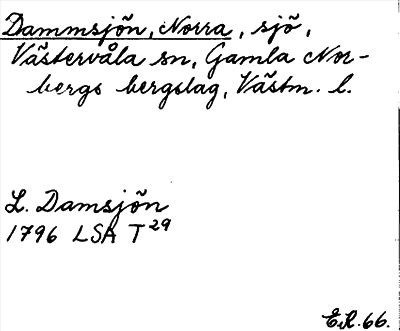 Dammsjön, Norra, sjö,
Västervåla sn, Gamla Nor-
bergs bergslag, Västm. l.
L. Damsjön
1796 LSA T29
E.R.66.